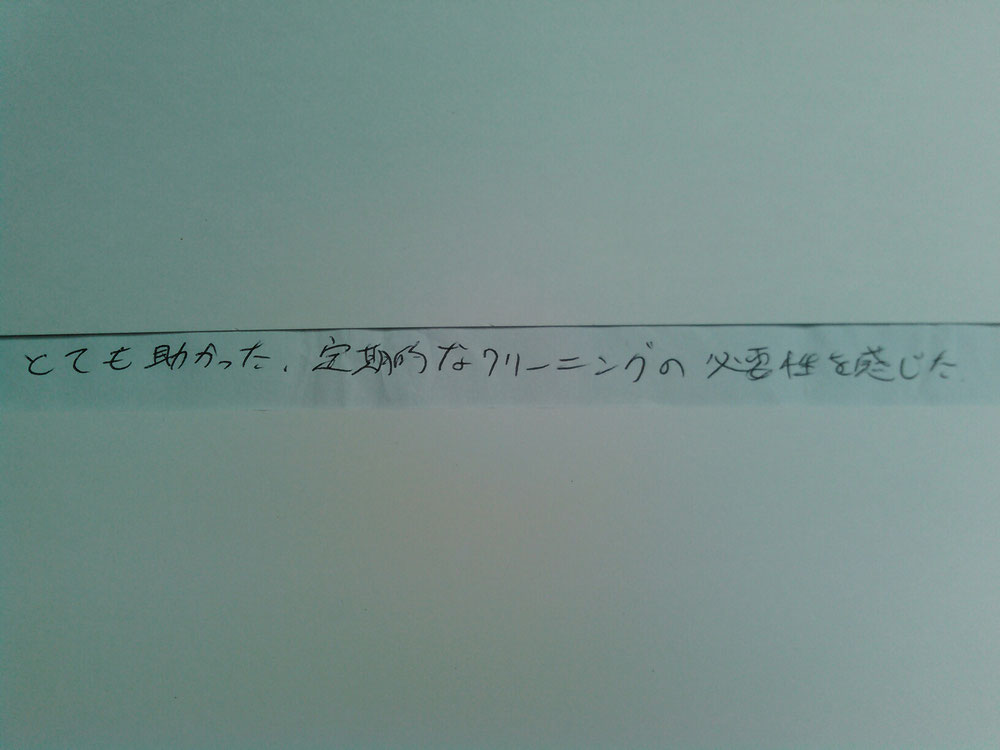 とても助かった、定期的なクリーニングの必要性を感じた